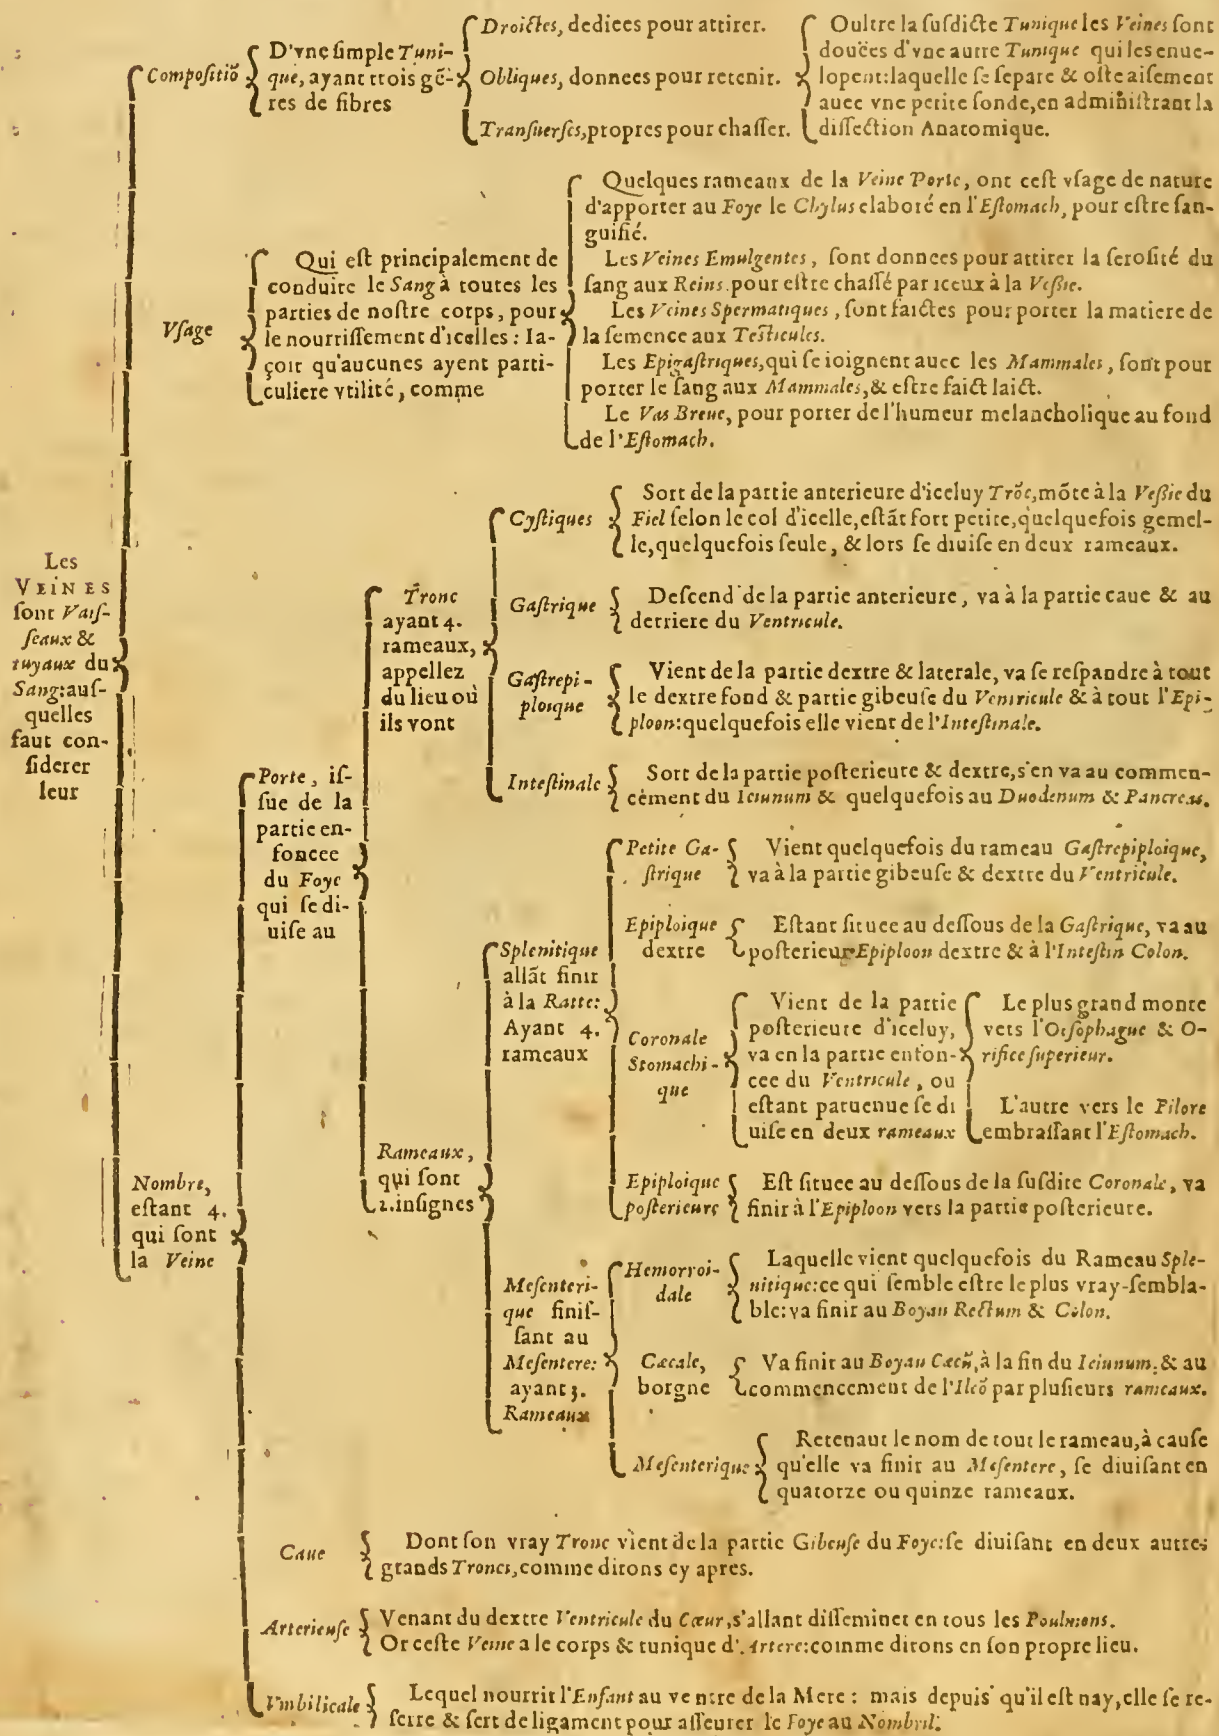 Les
VEINES
ſont Vaiſ-
ſeaux &
tuyaux du
Sang:auſ-
quelles
faut con-
ſiderer
leur
Compoſitiõ
D'vne ſimple Tuni-
que, ayant trois gẽ-
res de fibres
Droictes, dediees pour attirer.
Obliques, donnees pour retenir.
Tranſuerſes, propres pour chaſſer.
Oultre la ſuſdicte Tunique les Veines ſont
douëes d'vne autre Tunique qui les enue-
lopent:laquelle ſe ſepare & oſte aiſement
auec vne petite ſonde, en adminiſtrant la
diſſection Anatomique.
Vſage
Qui eſt principalement de
conduite le Sang à toutes les
parties de noſtre corps, pour
le nourriſſement d'icelles : Ia-
çoit qu'aucunes ayent parti-
culiere vtilité, comme
Quelques rameaux de la Veine Porte, ont ceſt vſage de nature
d'apporter au Foye le Chylus elaboré en l'Eſtomach, pour eſtre ſan-
guifié.
Les Veines Emulgentes, ſont donnees pour attirer la ſeroſité du
ſang aux Reins. pour eſtre chaſſé par iceux à la Veſsie.
Les Veines Spermatiques, ſont faictes pour porter la matiere de
la ſemence aux Teſticules.
Les Epigaſtriques, qui ſe ioignent auec les Mammales, ſont pour
porter le ſang aux Mammales, & eſtre faict laict.
Le Vas Breue, pour porter de l'humeur melancholique au fond
de l'Eſtomach.
Nombre,
eſtant 4.
qui ſont
la Veine
Porte, iſ-
ſue de la
partie en-
foncee
du Foye
qui ſe di-
uiſe au
Tronc
ayant 4.
rameaux,
appellez
du lieu où
ils vont
Cyſtiques
Sort de la partie anterieure d'iceluy Trõc, mõte à la Veſsie du
Fiel ſelon le col d'icelle, eſtãt fort petite, quelquefois gemel-
le, quelquefois ſeule, & lors ſe diuiſe en deux rameaux.
Gaſtrique
Deſcend de la partie anterieure, va à la partie caue & au
derriere du Ventricule.
Gaſtrepi-
ploique
Vient de la partie dextre & laterale, va ſe reſpandre à tout
le dextre fond & partie gibeuſe du Ventricule & à tout l'Epi-
ploon: quelquefois elle vient de l'Inteſtinale.
Inteſtinale
Sort de la partie poſterieure & dextre, s'en va au commen-
cement du Ieiunum & quelquefois au Duodenum & Pancreas.
Rameaux,
qui ſont
2. inſignes
Splenitique
allãt finir
à la Ratte:
Ayant 4.
rameaux
Petite Ga-
ſtrique
Vient quelquefois du rameau Gaſtrepiploique,
va à la partie gibeuſe & dextre du Ventricule.
Epiploique
dextre
Eſtant ſituee au deſſous de la Gaſtrique, va au
poſterieur Epiploon dextre & à l'Inteſtin Colon.
Coronale
Stomachi-
que
Vient de la partie
poſterieure d'iceluy,
va en la partie enfon-
cee du Ventricule, ou
eſtant paruenue ſe di
uiſe en deux rameaux
Le plus grand monte
vers l'Oeſophague & O-
rifice ſuperieur.
L'autre vers le Pilore
embraſſant l'Eſtomach.
Epiploique
poſterieure
Eſt ſituee au deſſous de la ſuſdite Coronale, va
finir à l'Epiploon vers la partie poſterieure.
Meſenteri-
que finiſ-
ſant au
Meſentere:
ayant 3.
Rameaux
Hemorroi-
dale
Laquelle vient quelquefois du Rameau Sple-
nitique: ce qui ſemble eſtre le plus vray-ſembla-
ble: va finir au Boyau Rectum & Colon.
Cæcale,
borgne
Va finir au Boyau Cæcũ, à la fin du Ieiunum. & au
commencement de l'Ileõ par pluſieurs rameaux.
Meſenterique
Retenant le nom de tout le rameau, à cauſe
qu'elle va finir au Meſentere, ſe diuiſant en
quatorze ou quinze rameaux.
Caue
Dont ſon vray Tronc vient de la partie Gibeuſe du Foye: ſe diuiſant en deux autres
grands Troncs, comme dirons cy apres.
Arterieuſe
Venant du dextre Ventricule du Cœur, s'allant diſſeminer en tous les Poulmons.
Or ceſte Veine a le corps & tunique d'Artere: comme dirons en ſon propre lieu.
Vmbilicale
Lequel nourrit l'Enfant au ventre de la Mere : mais depuis qu'il eſt nay, elle ſe re-
ſerre & ſert de ligament pour aſſeurer le Foye au Nombril.